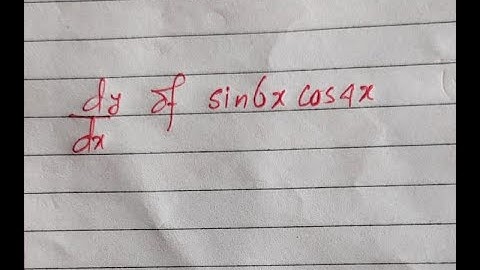 dy/dx of sin6x cos4x